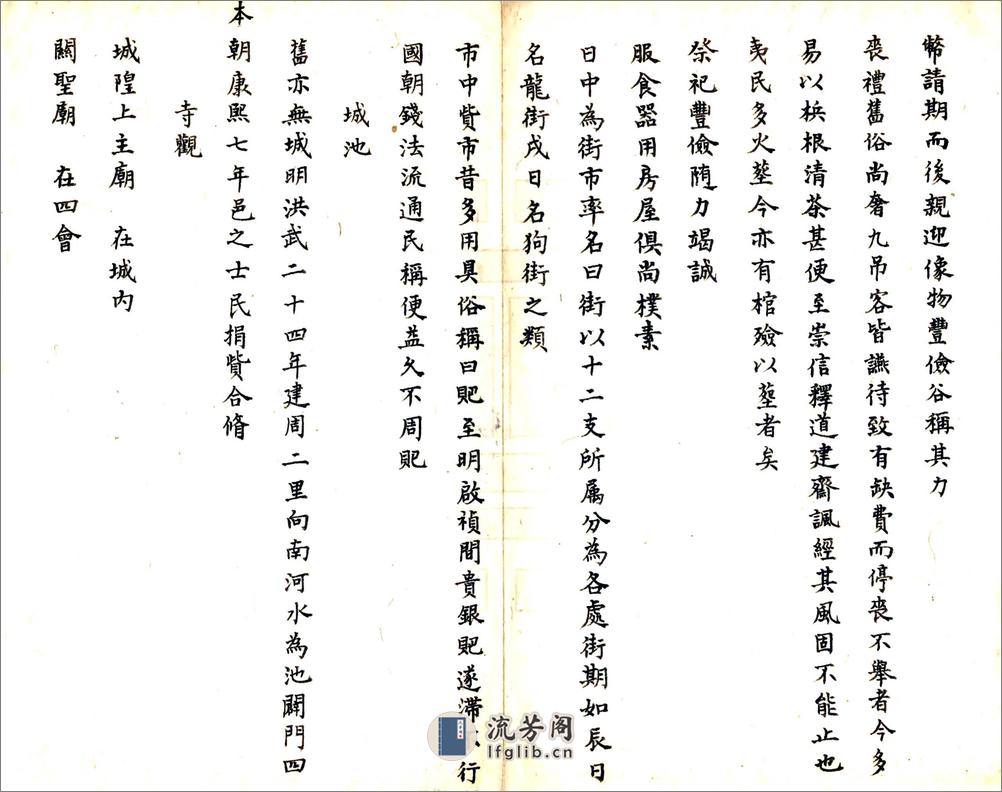 幣請期而後親迎像物豐儉谷稱其力
喪禮舊俗尚奢九吊客皆讌待致有缺費而停喪不舉者今多
易以梹根清茶甚便至崇信釋道建齋諷經其風固不能止也
夷民多火塟今亦有棺殮以塟者矣
祭祀豐儉随力竭誠
服食器用房屋俱尚樸素
日中為街市率名曰街以十二支所属分為各處街期如辰日
名龍街戌日名狗街之類
市中貲市昔多用具俗稱曰䝯至明啟禎間貴銀䝯遂滯行
國朝錢法流通民稱便益久不周䝯
城池
舊亦無城明洪武二十四年建周二里向南河水為池闢門四
本朝康熙七年邑之士民捐貲合脩
寺觀
城隍上主廟 在城内
關聖廟 在四會
流芳阁
lfglib.cn